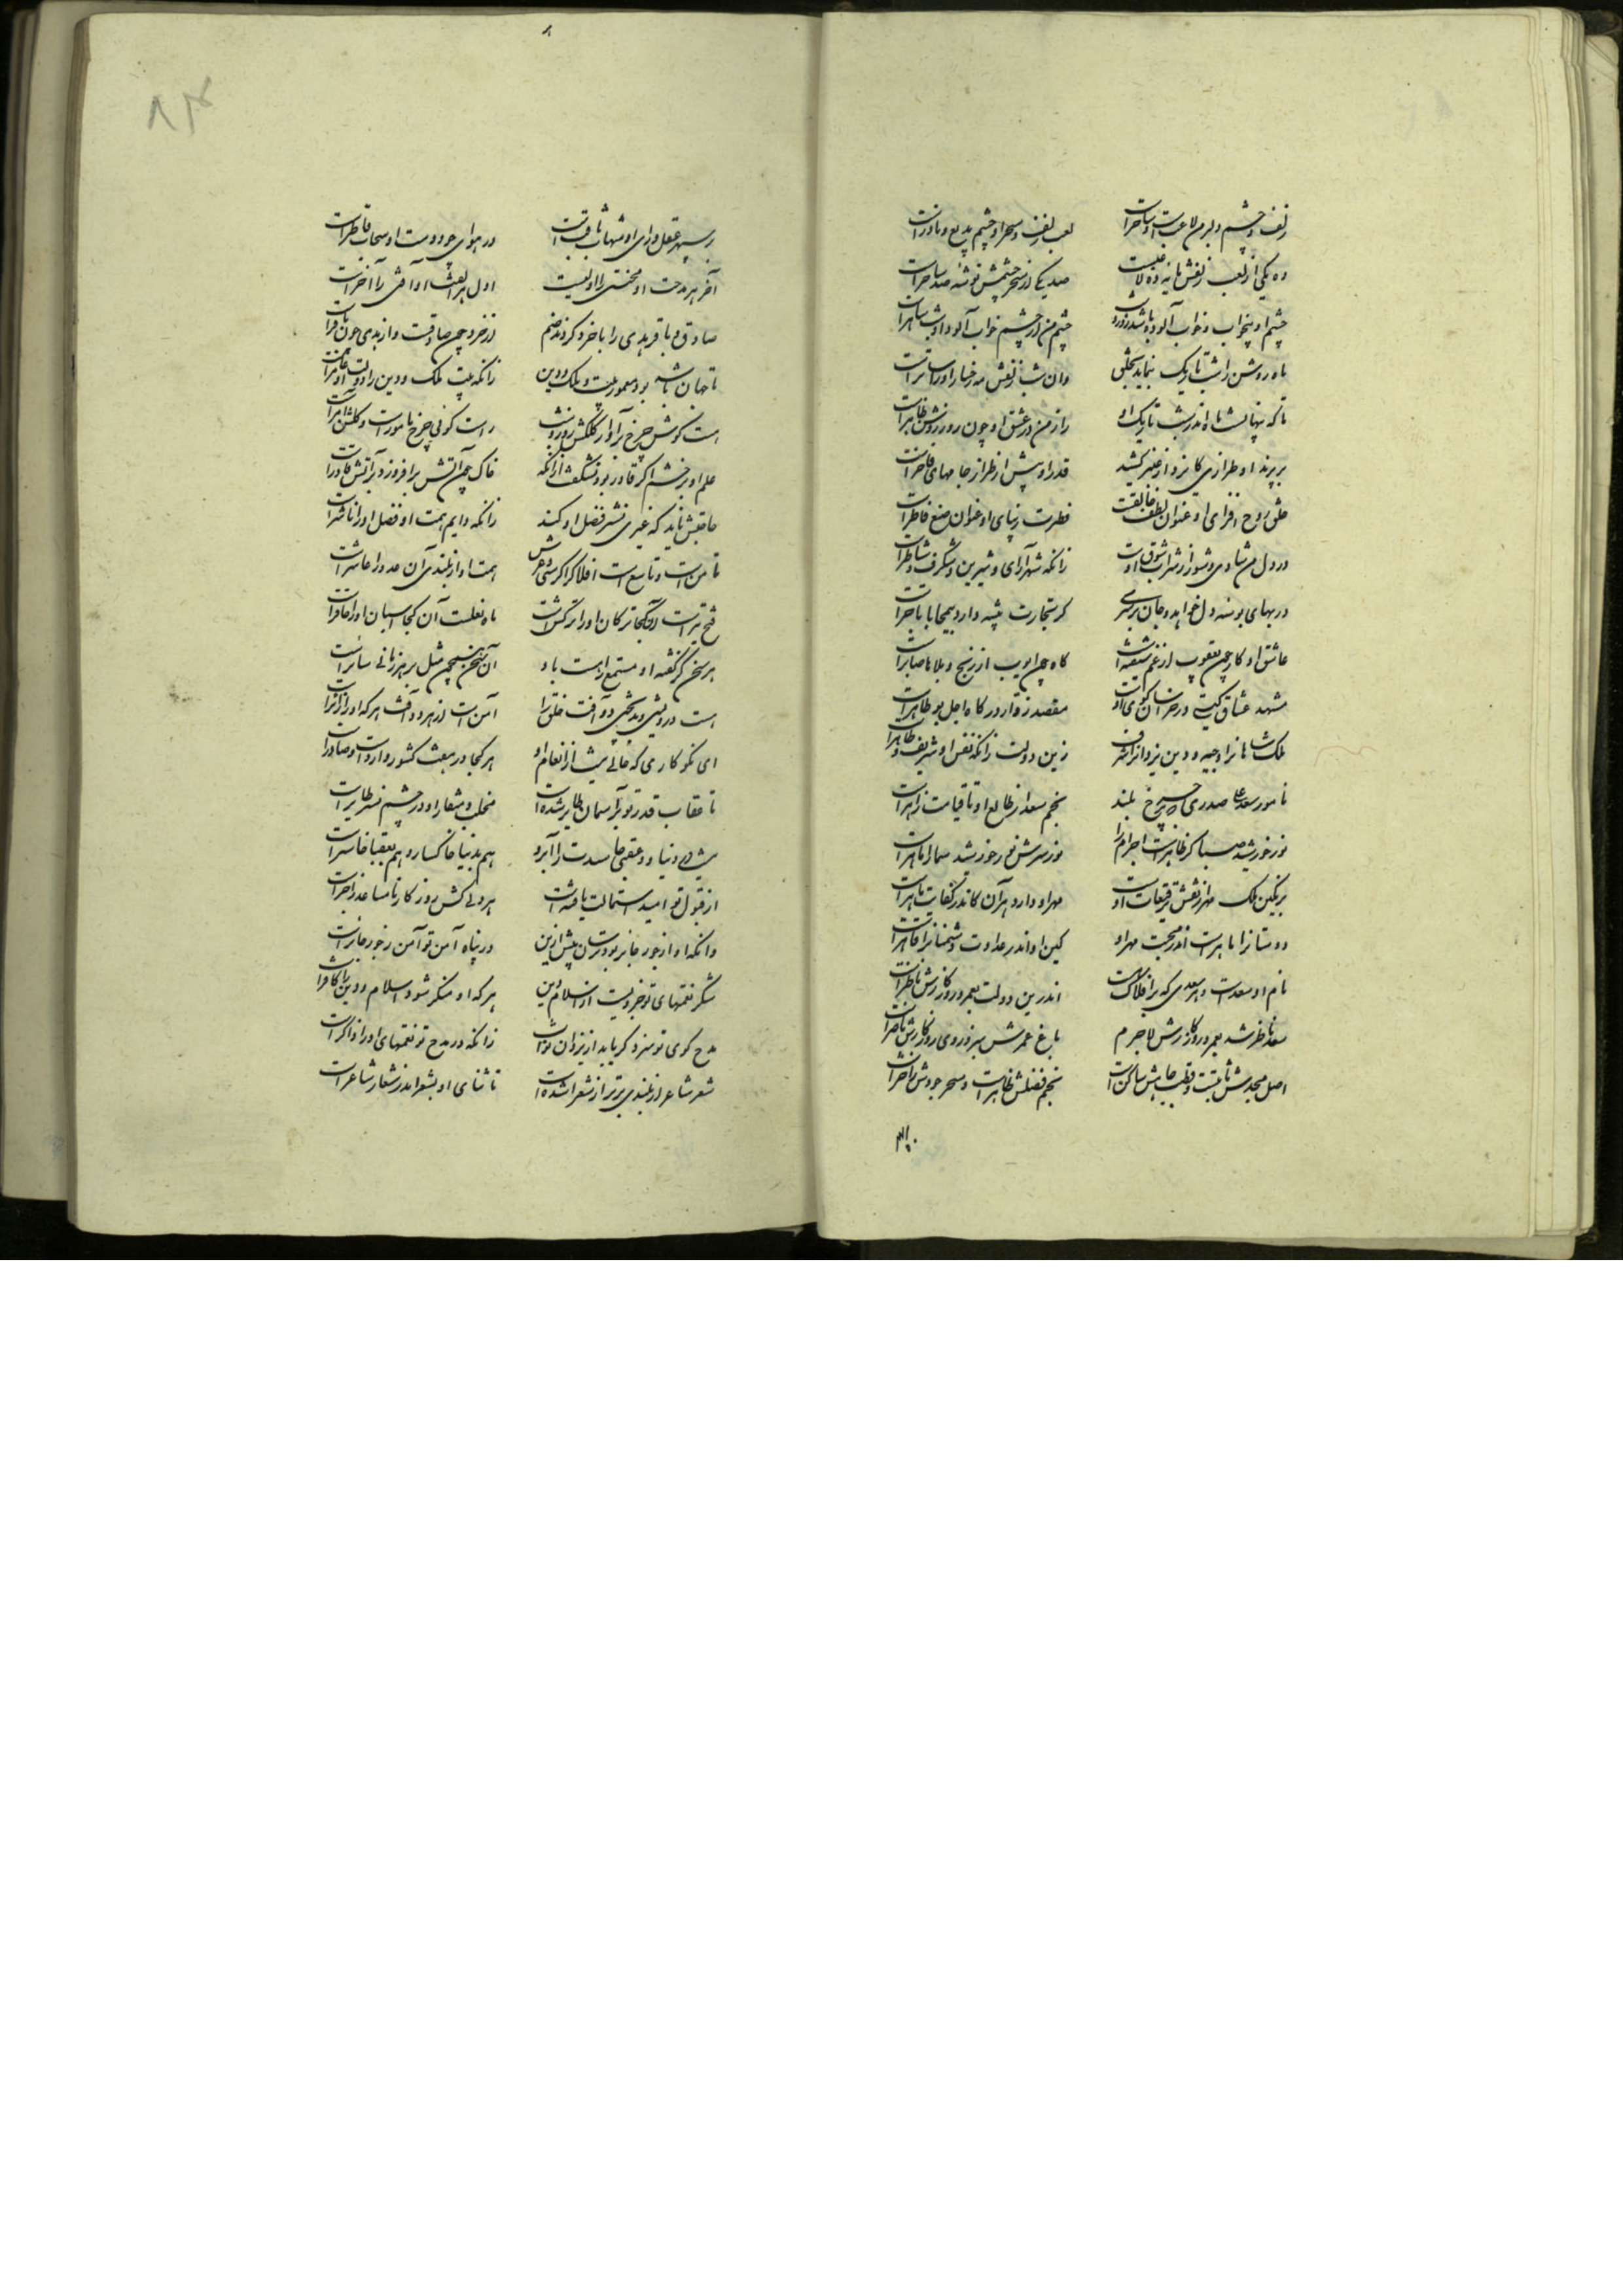 زلف و چشم دلبر من لاعبست و ساحرست لعب زلف و سحر او چشم بدیع و نادرست
ده یکی از لعب زلفش مایه ده لاعبست صد یکی از سحر چشمش توشه صد ساحرست
چشم او بیخواب و خواب آلوده باشد روز و شب چشم من از چشم خواب آلود او شب ساهرست
ماه روشن را شب تاریک بنماید بخلق وان شب زلفش مه رخسار او را ساترست
تا که پنهانست ماه اندر شب تاریک او راز من در عشق او چون روز روشن ظاهرست
بر پرند او طرازی کایزد از عنبر کشید قدر او بیش از طراز جامهای فاخرست
خلق روح افزای او عنوان لطف خالقست فطرت زیبای او عنوان صنع فاطرست
در دل من شادی و شور از شراب شوق اوست زانکه شهرآرای و شیرین و شگرف و شاطرست
در بهای بوسه دل خواهد و جان بر سری گر تجارت پیشه دارد بیمحابا تاجرست
عاشق او گاه چون یعقوب از غم شیفته است گاه چون ایوب از رنج و بلاها صابرست
مشهد عشاق گیتی در خراسان کوی اوست مقصد زوار درگاه اجل بو طاهرست
ملک شاهانرا وجیه و دین یزدانرا شرف زین دولت زانکه نفس او شریف و طاهرست
نامور سعد علی صدری که بر چرخ بلند نجم سعد از طالع او تا قیامت زاهرست
نور خورشید سما گر قاهرست اجرام را نور سرش نور خورشید سما را قاهرست
بر نگین ملک مهر از نقش توقیعات اوست مهر او دارد هر آن کاندر کفایت ماهرست
دوستانرا ناصرست اندر محبت مهر او کین او اندر عداوت دشمنانرا قاهرست
نام او سعدست و هر سعدی که بر افلاک هست اندرین دولت بعمر و روزگارش ناظرست
سعد ناظر شد بعمر و روزگارش لاجرم باغ عمرش سبز و روی روزگارش ناضرست
اصل مجدش ثابتست و قطب جاهش ساکنست نجم فضلش ظاهرست و بحر جودش زاخرست
بر سپهر عقل و رای او شهاب ثاقبست در هوای جود دست او سحاب قاطرست
آخر هر مدحت او محنتی را اولیست اول هر نعمت او آفتی را آخرست
صادق و باقر بدی را با خرد کردند ضم از خرد چون صادقست و از بدی چون باقرست
تا جهان باشد بود معمور ملت و ملک و دین زانکه ملت ملک و دین را دولت او عامرست
هست گوش چرخ بر آواز کلکش روز و شب راست گوئی چرخ مامورست و کلکش آمرست
حلم او بر خشم اگر قادر بود نشگفت ازانکه خاک چون آتش برافروزد بر آتش قادرست
حاجتش ناید که غیری نشر فضل او کند زانکه دایم همت او فضل او را ناشرست
ثامن است و تاسع است افلاک را کرسی و عرش همت او از بلندی آن عدد را عاشرست
فتح تیرست آنکجا ترکان او را ترکش است ماه نعلست آن کجا اسبان او را حافرست
هر سخن کز گفته او مستمع را هست یاد آن سخن همچون مثل بر هر زبانی سایرست
هست درویشی و بدبختی دو آفت خلق را آمن است از هر دو آفت هر که او را زائرست
ای نکو کاری که خالی نیست از انعام تو هر کجا در هفت کشور واردست و صادرست
تا عقاب قدر تو بر آسمان طایر شده است مخلب و منقار او در چشم نسر طایرست
نیست در دنیا و عقبی حاسدت را آبرو هم بدنیا خاکسار و هم بعقبا خاسرست
از قبول تو امید استمالت یافته است هر دلی کش روزگار نامساعد زاجرست
وانکه او از جور جائر بود ترسان پیش ازین در پناه آمن تو آمن ز جور جائرست
شکر نعمتهای تو جزویست از اسلام و دین هر که او منکر شود اسلام و دین را کافرست
مدح گوی تو سزد گر یابد از یزدان ثواب زانکه در مدح تو نعمتهای او را ذاکرست
شعر شاعر از بلندی برتر از شعرا شده است تا ثنای او بشعر اندر شعار شاعرست